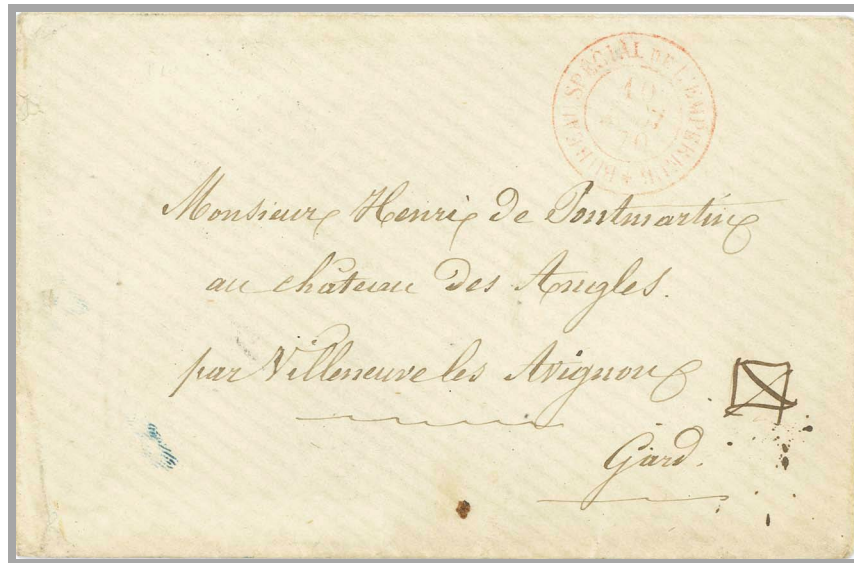 BUREAU SPÉCIAL DE L'EMPEREUR *
10
70
Monsieur Henri de Pontmartin
au château des Angles.
par Villeneuve les Avignon
Gard.